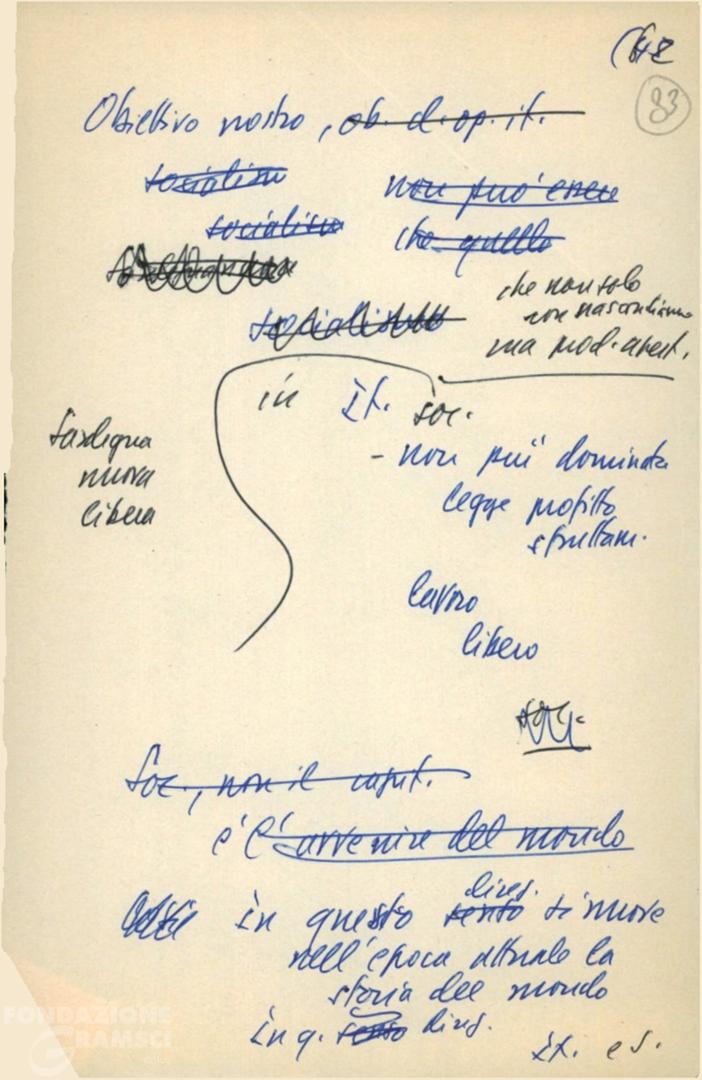 83
Obiettivo nostro, ob. d. op. it.
socialism
non può essere
socialism
che quello
socialismo
che non solo
non nascondiamo
ma
in It. soc.
Sardegna
nuova
libera
- non più dominata
legge profitto
sfruttam.
lavoro
libero
soc.
Soc., non il capit.
è l'avvenire del mondo
in questo senso direz. si muove
nell'epoca attuale la
storia del mondo
in q. senso direz.
It. e S.
FONDAZIONE
GRAMSCI